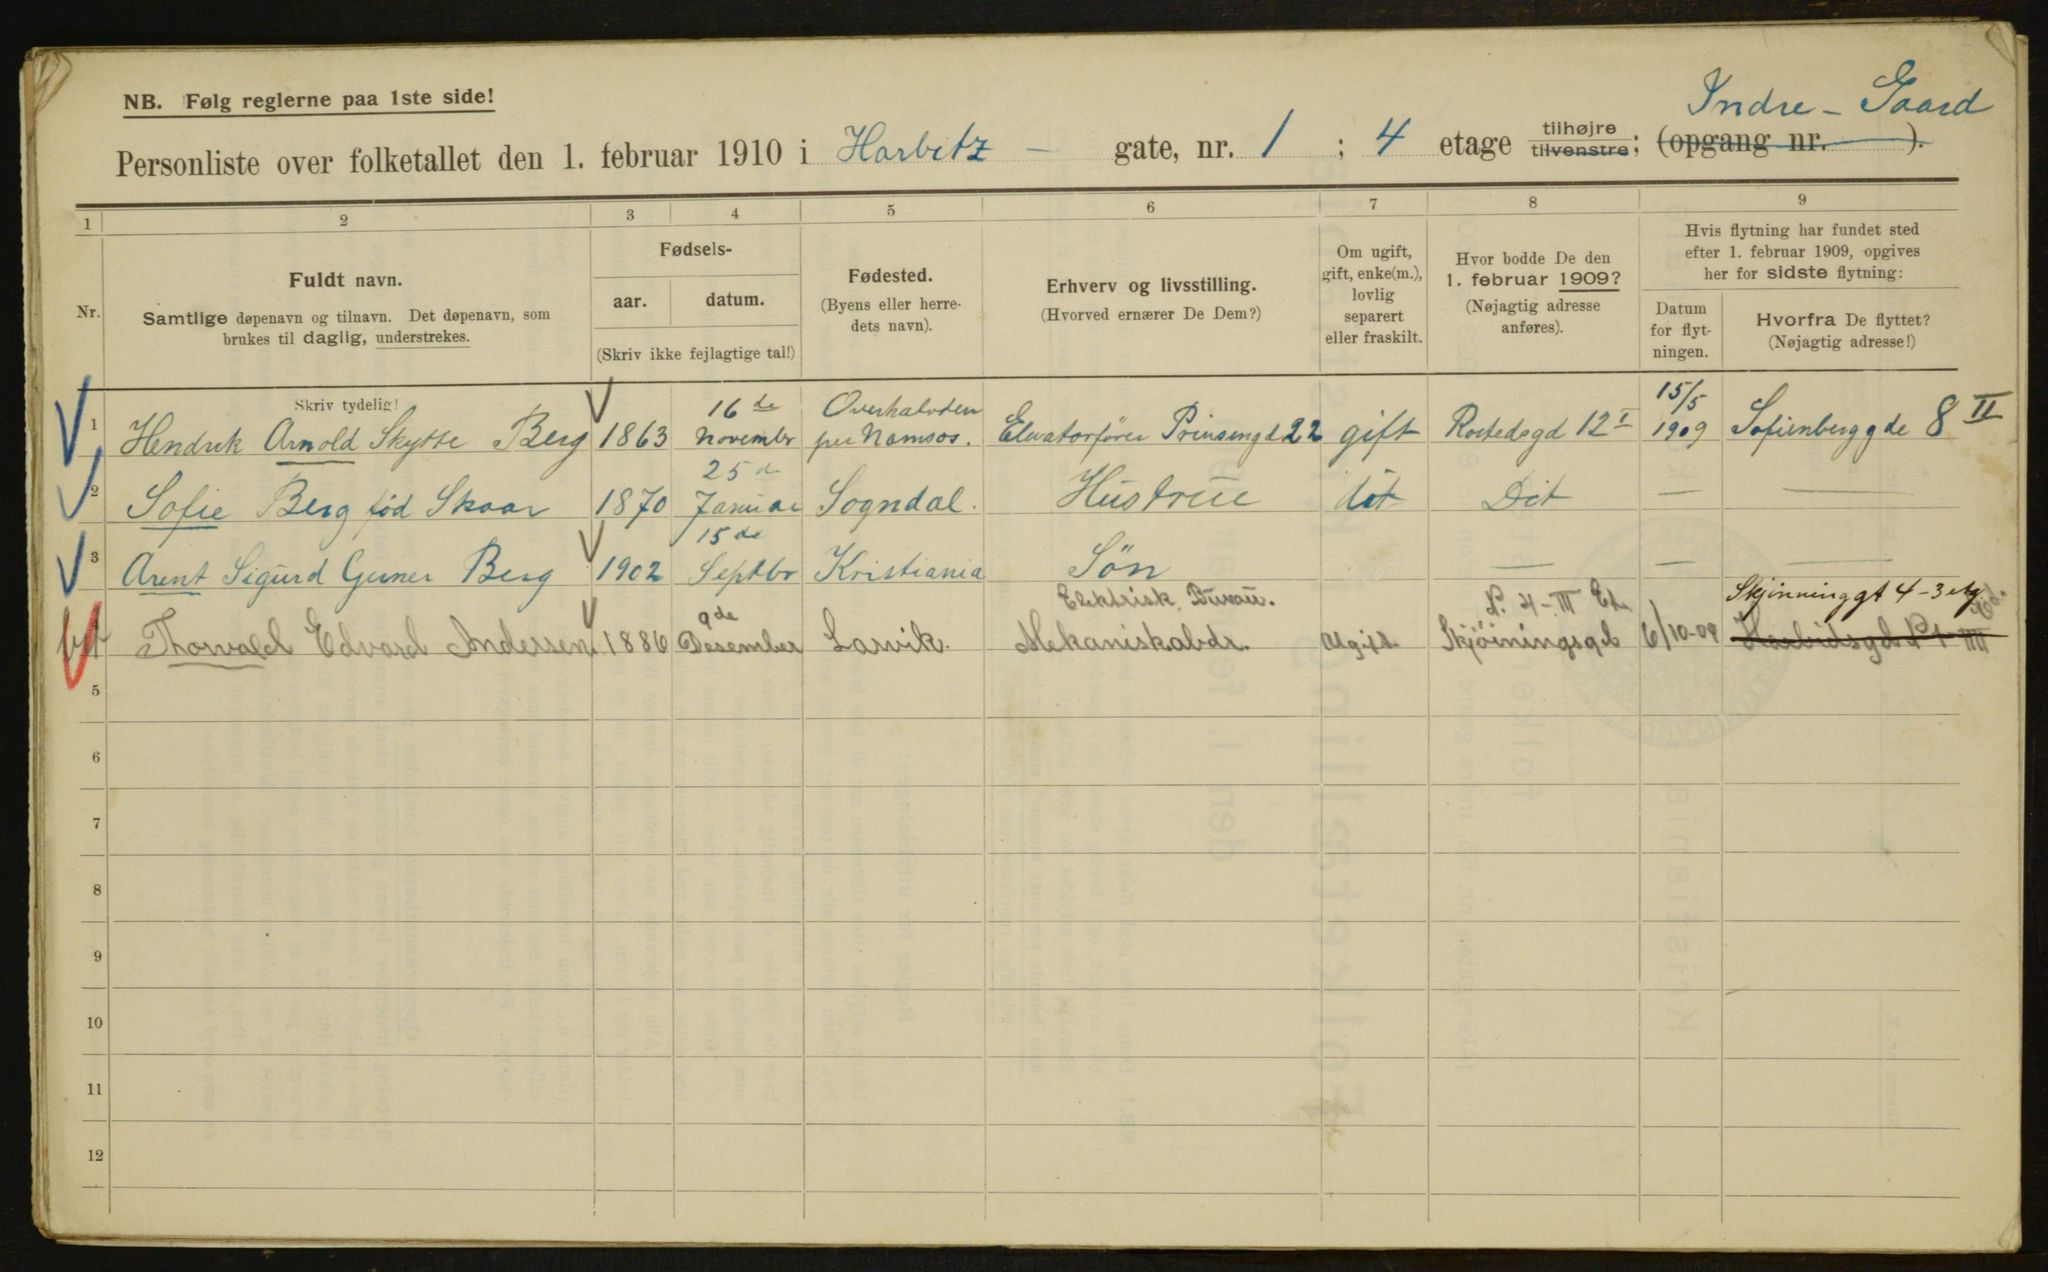 Indre - Gaard
NB. Følg reglerne paa 1ste side!
Personliste over folketallet den 1. februar 1910 i Harbitz - gate, nr. 1 ; 4 etage tilhøjre tilvenstre; (opgang nr. ).
1 2 3 4 5 6 7 8 9
Nr.
Fuldt navn.
Samtlige døpenavn og tilnavn. Det døpenavn, som
brukes til daglig, understrekes.
Fødsels-
aar. datum.
(Skriv ikke fejlagtige tal!)
Fødested.
(Byens eller herre-
dets navn).
Erhverv og livsstilling.
(Hvorved ernærer De Dem?)
Om ugift,
gift, enke(m.),
lovlig
separert
eller fraskilt.
Hvor bodde De den
1. februar 1909?
(Nøjagtig adresse
anføres).
Hvis flytning har fundet sted
efter 1. februar 1909, opgives
her for sidste flytning:
Datum
for flyt-
ningen.
Hvorfra De flyttet?
(Nøjagtig adresse!)
Skriv tydelig!
16 de Overhalvden 15/5
1 Hendrik Arnold Skytte Berg 1863 Novembr per Namsos. Elevatorfører Prinsengd 22 gift Rostedsgd 12 I 1909 Sofienberggde 8 II
25 d
2 Sofie Berg fød Skaar 1870 Januar Sogndal. Hustrue dit Dit — —
15 de
3 Arent Sigurd Berg 1902 Septbr Kristiania Søn — — —
9de Elektrisk Bureau. Nr. 4 - III Et. Skjinninggt 4 - 3 etg.
4 Thorvald Edvard Andersen 1886 Desember Larvik. Mekaniskabdr. Ugift Skjøiningsgd 6/10-09
5
6
7
8
9
10
11
12